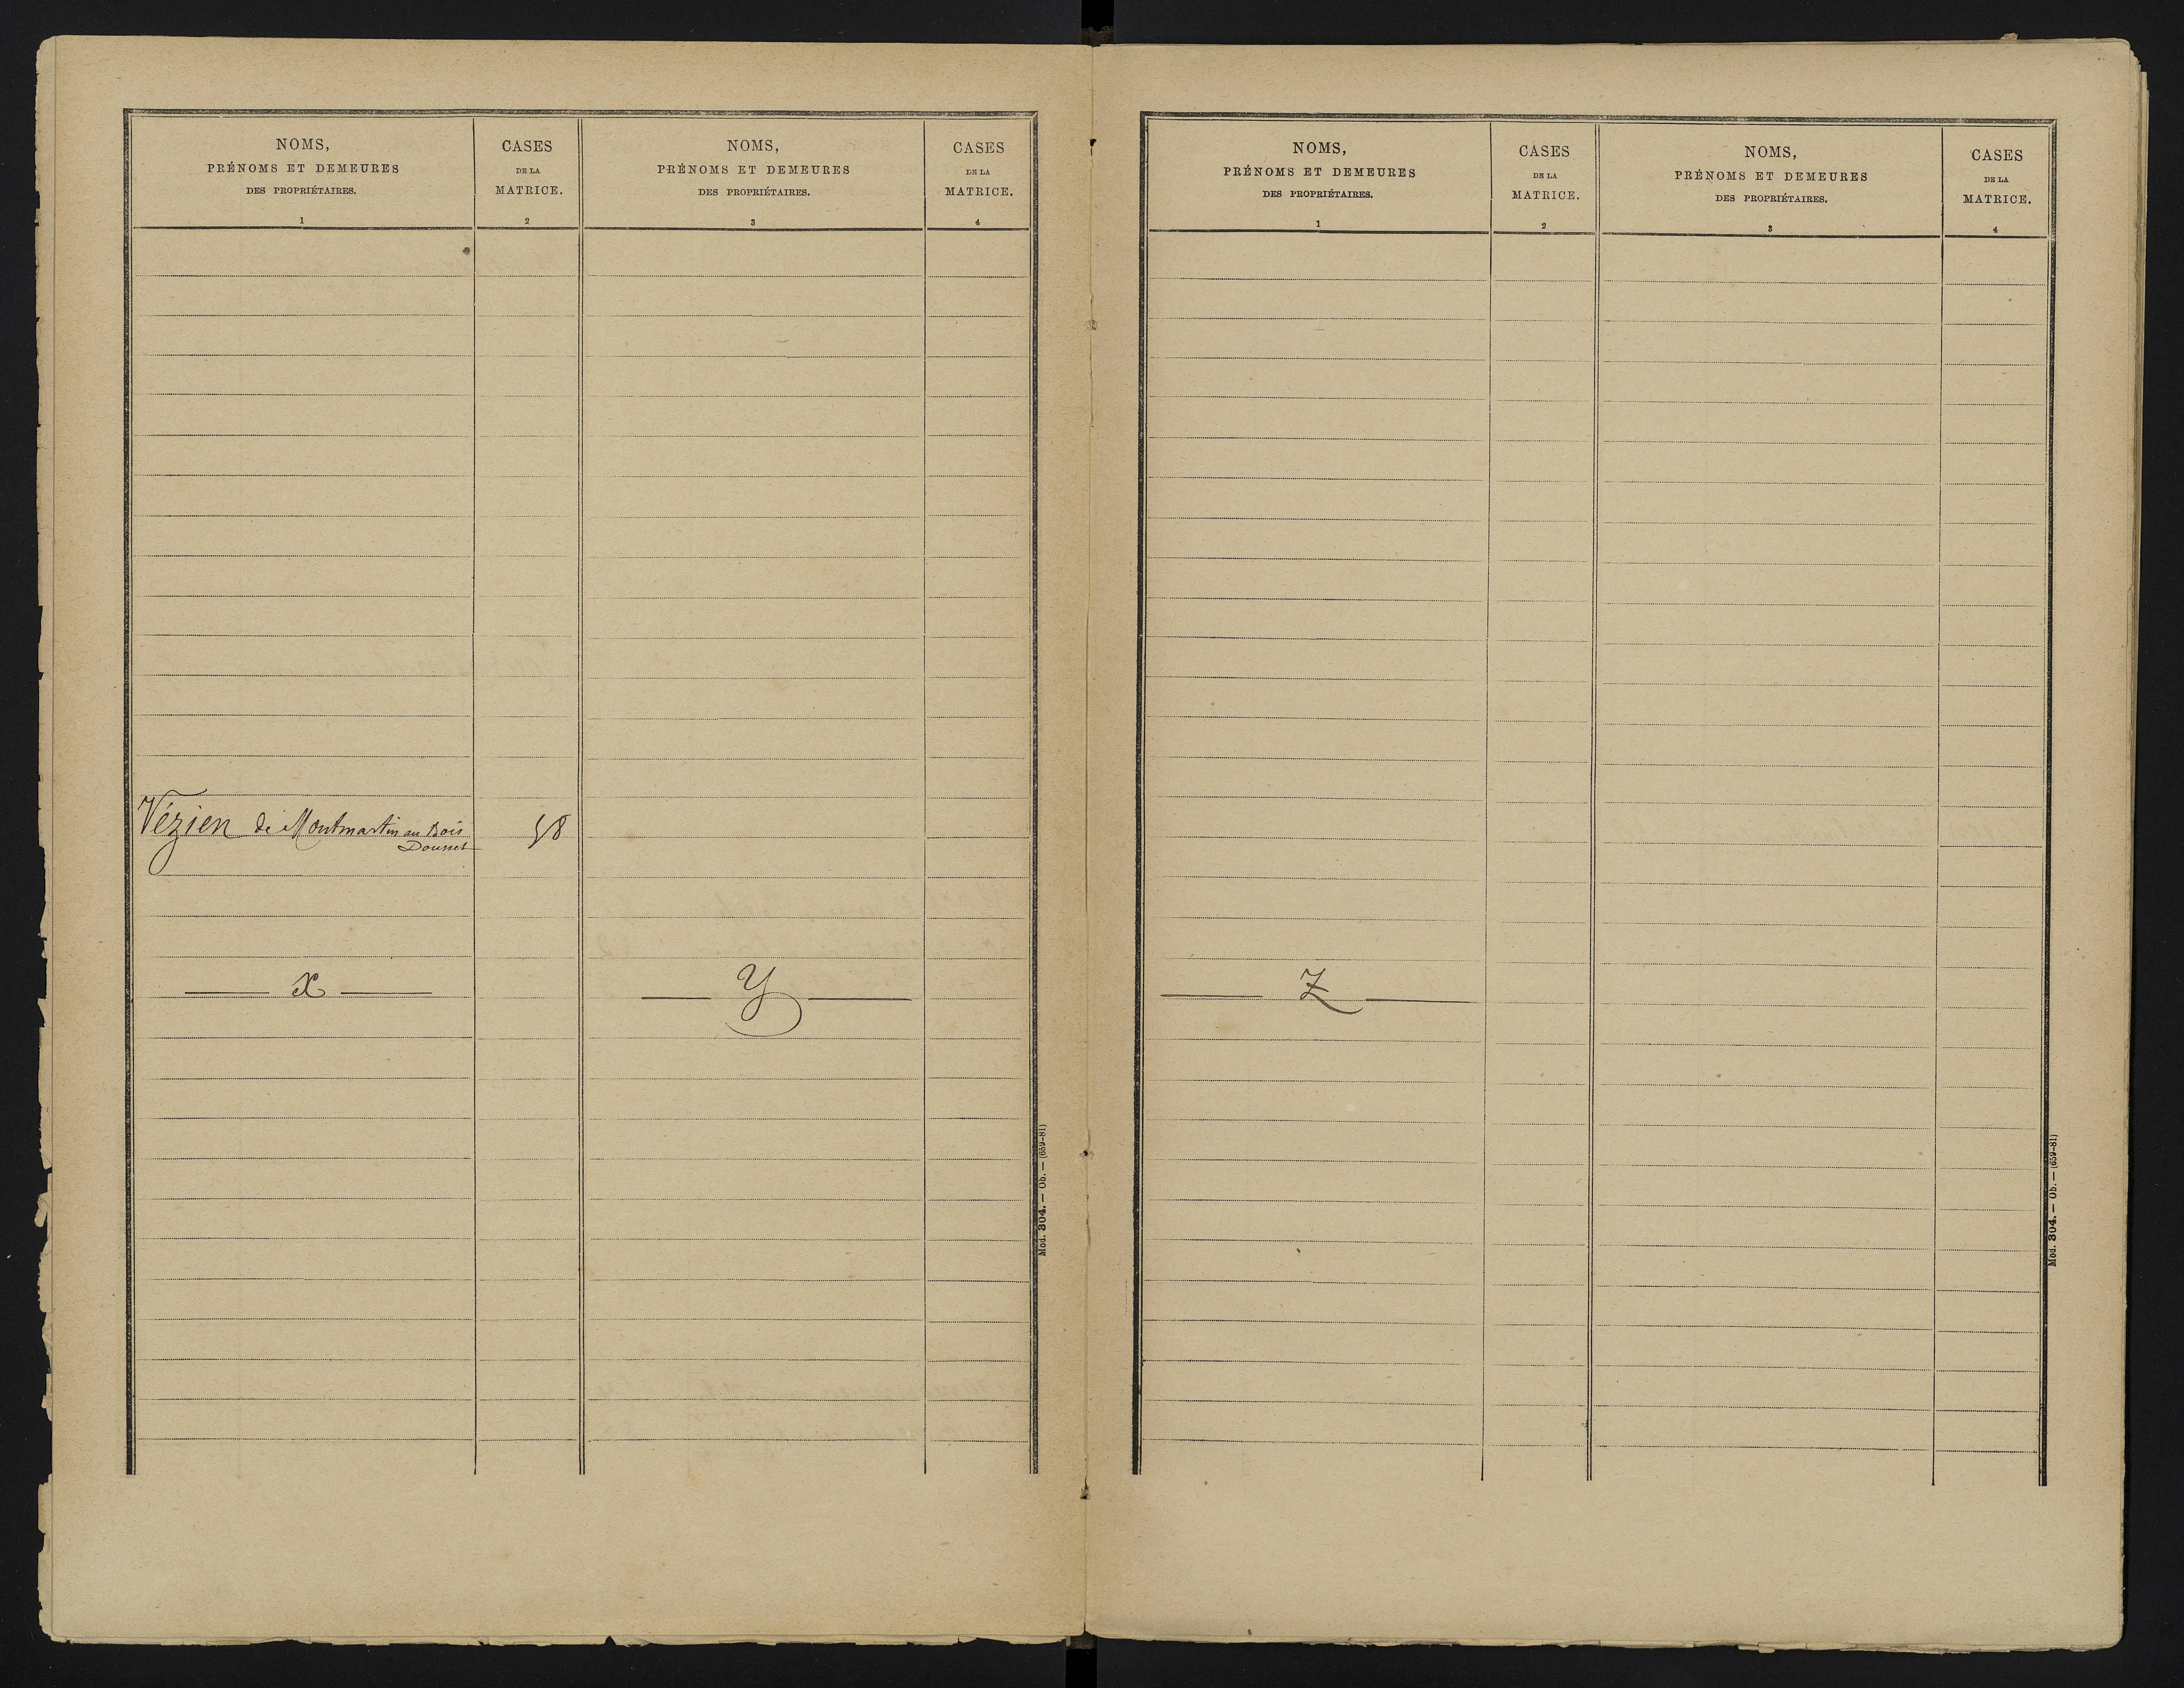 NOMS,
PRÉNOMS ET DEMEURES
DES PROPRIÉTAIRES.
1
CASES
DE LA
MATRICE.
2
NOMS,
PRÉNOMS ET DEMEURES
DES PROPRIÉTAIRES.
3
CASES
DE LA
MATRICE.
4
Vézien de Montmartin au Bois 58
Dousset
X
Y
Mod. 304. — Ob. — (659-81)
NOMS,
PRÉNOMS ET DEMEURES
DES PROPRIÉTAIRES.
1
CASES
DE LA
MATRICE.
2
NOMS,
PRÉNOMS ET DEMEURES
DES PROPRIÉTAIRES.
3
CASES
DE LA
MATRICE.
4
Z
Mod. 304. — Ob. — (659-81)